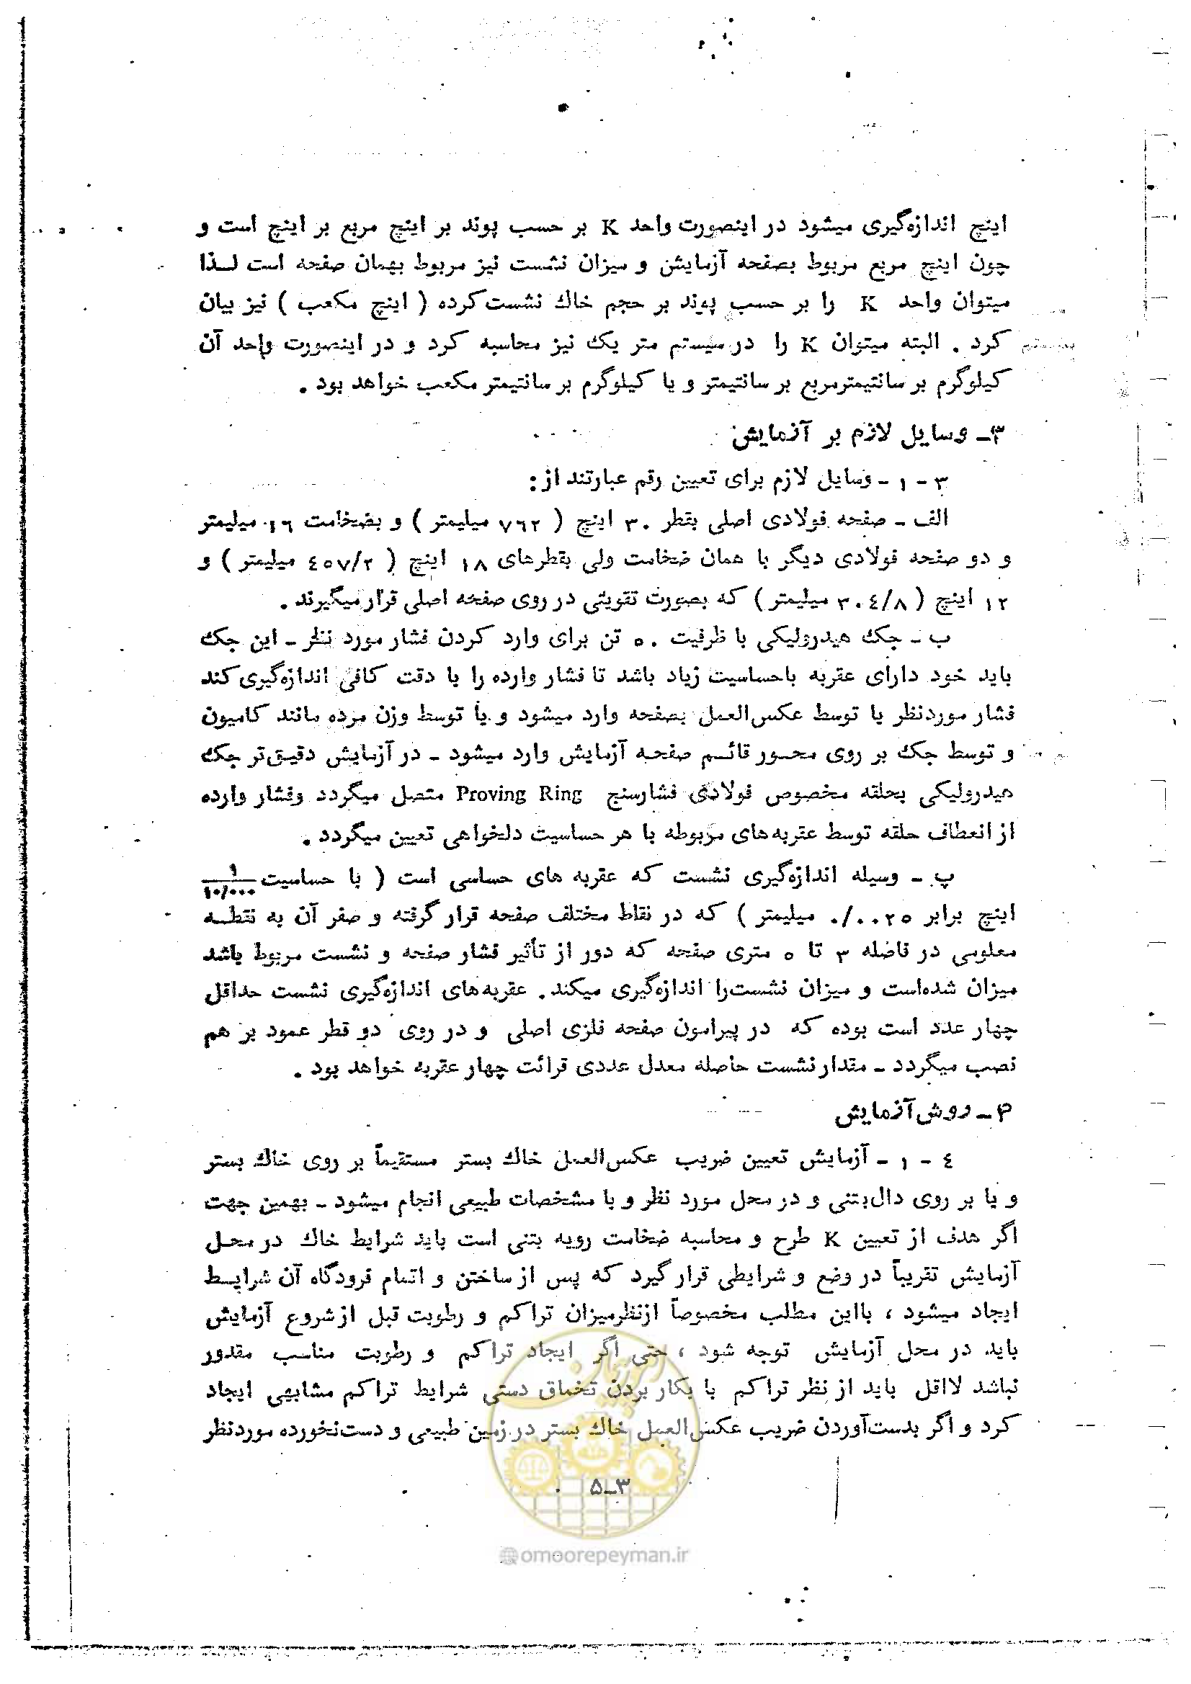 اینچ اندازه‌گیری میشود در اینصورت واحد K بر حسب پوند بر اینچ مربع بر اینچ است و
چون اینچ مربع مربوط بصفحه آزمایش و میزان نشست نیز مربوط بهمان صفحه است لـذا
میتوان واحد K را بر حسب پوند بر حجم خاك نشست‌کرده ( اینچ مکعب ) نیز بیان
کرد . البته میتوان K را در سیستم متر یك نیز محاسبه کرد و در اینصورت واحد آن
کیلوگرم بر سانتیمترمربع بر سانتیمتر و یا کیلوگرم بر سانتیمتر مکعب خواهد بود .
۳ــ وسایل لازم بر آزمایش
۳ - ۱ - وسایل لازم برای تعیین رقم عبارتند از :
الف ـ صفحه فولادی اصلی بقطر ۳۰ اینچ ( ۷۶۲ میلیمتر ) و بضخامت ۱۶ میلیمتر
و دو صفحه فولادی دیگر با همان ضخامت ولی بقطرهای ۱۸ اینچ ( ۴۵۷/۲ میلیمتر ) و
۱۲ اینچ ( ۳۰۴/۸ میلیمتر ) که بصورت تقویتی در روی صفحه اصلی قرار میگیرند .
ب ـ جك هیدرولیکی با ظرفیت ۵۰ تن برای وارد کردن فشار مورد نظر ـ این جك
باید خود دارای عقربه باحساسیت زیاد باشد تا فشار وارده را با دقت کافی اندازه‌گیری کند
فشار موردنظر یا توسط عکس‌العمل بصفحه وارد میشود و یا توسط وزن مرده مانند کامیون
و توسط جك بر روی محـور قائـم صفحـه آزمایش وارد میشود ـ در آزمایش دقیق‌تر جك
هیدرولیکی بحلقه مخصوص فولادی فشارسنج Proving Ring متصل میگردد وفشار وارده
از انعطاف حلقه توسط عقربه‌های مربوطه با هر حساسیت دلخواهی تعیین میگردد .
پ ـ وسیله اندازه‌گیری نشست که عقربه های حساسی است ( با حساسیت ۱/۱۰/۰۰۰
اینچ برابر ۰/۰۰۲۵ میلیمتر ) که در نقاط مختلف صفحه قرار گرفته و صفر آن به نقطـه
معلومی در فاصله ۳ تا ۵ متری صفحه که دور از تأثیر فشار صفحه و نشست مربوط باشد
میزان شده‌است و میزان نشست‌را اندازه‌گیری میکند . عقربه‌های اندازه‌گیری نشست حداقل
چهار عدد است بوده که در پیرامون صفحه فلزی اصلی و در روی دو قطر عمود بر هم
نصب میگردد ـ مقدار نشست حاصله معدل عددی قرائت چهار عقربه خواهد بود .
۴ــ روش آزمایش
۴ - ۱ - آزمایش تعیین ضریب عکس‌العمل خاك بستر مستقیماً بر روی خاك بستر
و یا بر روی دال‌بتنی و در محل مورد نظر و با مشخصات طبیعی انجام میشود ـ بهمین جهت
اگر هدف از تعیین K طرح و محاسبه ضخامت رویه بتنی است باید شرایط خاك در محـل
آزمایش تقریباً در وضع و شرایطی قرار گیرد که پس از ساختن و اتمام فرودگاه آن شرایـط
ایجاد میشود ، بااین مطلب مخصوصاً ازنظرمیزان تراکم و رطوبت قبل از شروع آزمایش
باید در محل آزمایش توجه شود ، حتی اگر ایجاد تراکم و رطوبت مناسب مقدور
نباشد لااقل باید از نظر تراکم با بکار بردن تخماق دستی شرایط تراکم مشابهی ایجاد
کرد و اگر بدست‌آوردن ضریب عکس‌العمل خاك بستر در زمین طبیعی و دست‌نخورده موردنظر
۵ــ۳
امور پیمان
@omoorepeyman.ir